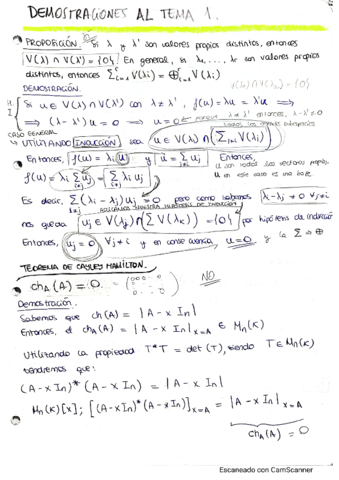 DEMOSTRACIONES AL TEMA 1.
PROPOSICIÓN. Si λ y λ' son valores propios distintos, entonces
V(λ) ∩ V(λ') = {0}. En general, si λ₁, ..., λr son valores propios
distintos, entonces Σ V(λi) = ⊕ V(λi)
DEMOSTRACIÓN.
Si u ∈ V(λ) ∩ V(λ') con λ ≠ λ', f(u) = λu = λ'u ⟹
⟹ (λ - λ')u = 0 ⟹ u = 0 λ ≠ λ' entonces, λ - λ' ≠ 0
CASO GENERAL
UTILIZANDO INDUCCIÓN sea u ∈ V(λi) ∩ (Σ V(λj))
Entonces, f(u) = λi u y u = Σ uj Entonces,
f(u) = λi Σ uj = Σ λj uj
Es decir, Σ (λi - λj) uj = 0 pero como sabemos λi - λj ≠ 0 ∀j≠i
nos queda uj ∈ V(λj) ∩ (Σ V(λk)) = {0} por hipótesis de inducción
Entonces, uj = 0 ∀j≠i y en consecuencia, u = 0 y la Σ → ⊕
TEOREMA DE CAYLEY HAMILTON.
ch_A(A) = 0. NO
Demostración.
Sabemos que ch(A) = |A - x In|
Entonces, el ch_A(A) = |A - x In|x=A ∈ Mn(K)
Utilizando la propiedad T*T = det(T), siendo T ∈ Mn(K)
tendremos que:
(A - x In)* (A - x In) = |A - x In|
Mn(K)[x]; [(A - x In)* (A - x In)]x=A = |A - x In|x=A
ch_A(A) = 0
Escaneado con CamScanner